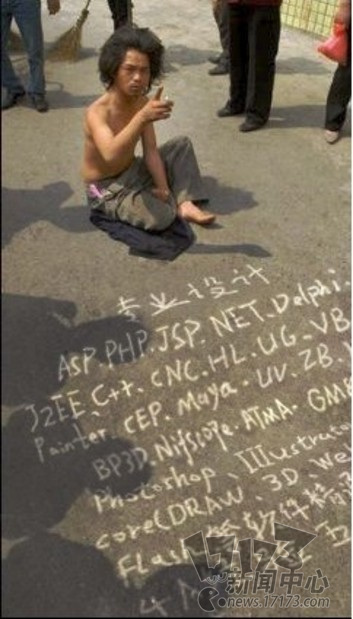 专业设计
ASP.PHP.JSP.NET.Delphi.
J2EE、C++.CNC.HL.UG.VB
Painter.CEP.Maya.UV.ZB.
BP3D.Nitscope.ATMA.GME
Photoshop、Illustrator
corelDRAW、3D
Flash等软件精
17173
新闻中心
news.17173.com